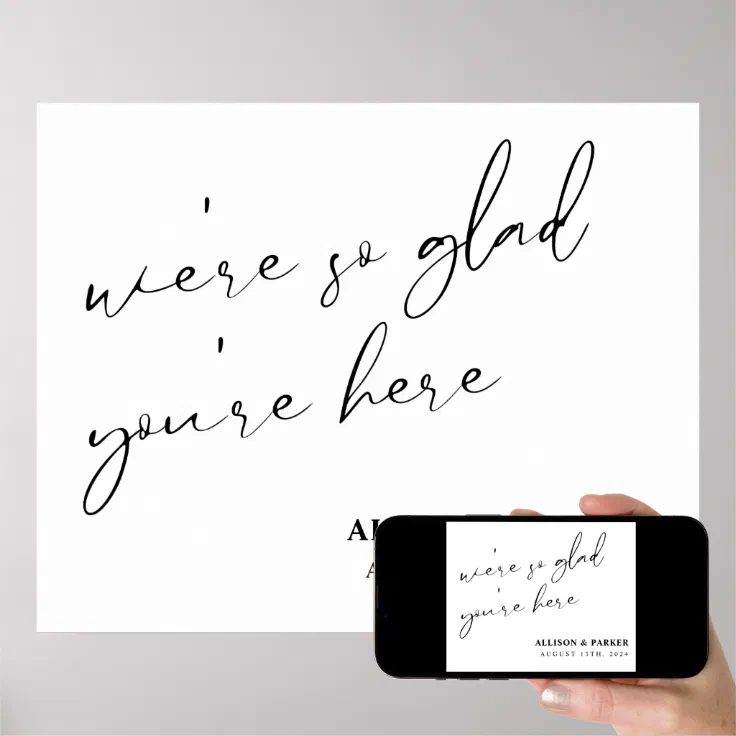 we're so glad
you're here
we're so glad
you're here
ALLISON & PARKER
AUGUST 15TH, 2024